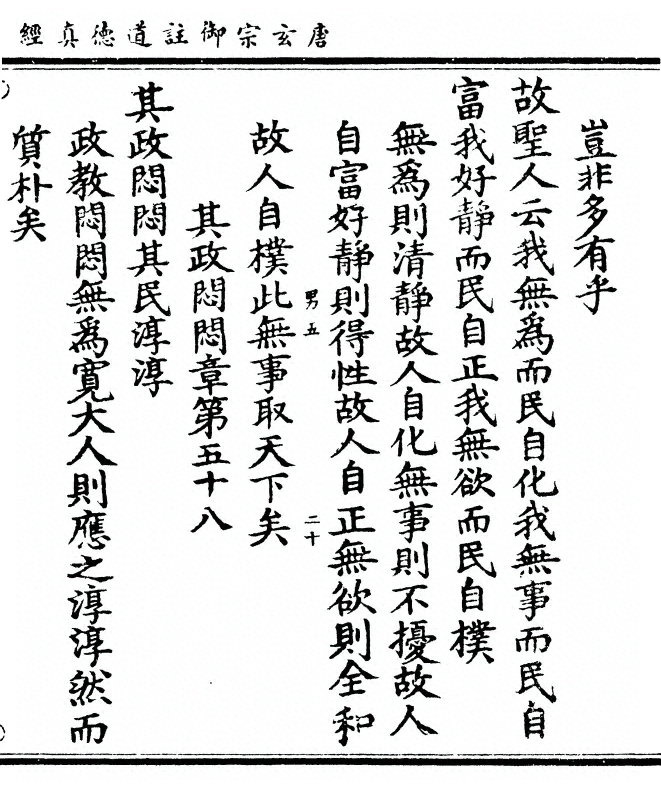 唐玄宗御註道德真經
豈非多有乎
故聖人云我無為而民自化我無事而民自
富我好靜而民自正我無欲而民自樸
無為則清靜故人自化無事則不擾故人
自富好靜則得性故人自正無欲則全和
男五
二十
故人自樸此無事取天下矣
其政悶悶章第五十八
其政悶悶其民淳淳
政教悶悶無為寬大人則應之淳淳然而
質朴矣